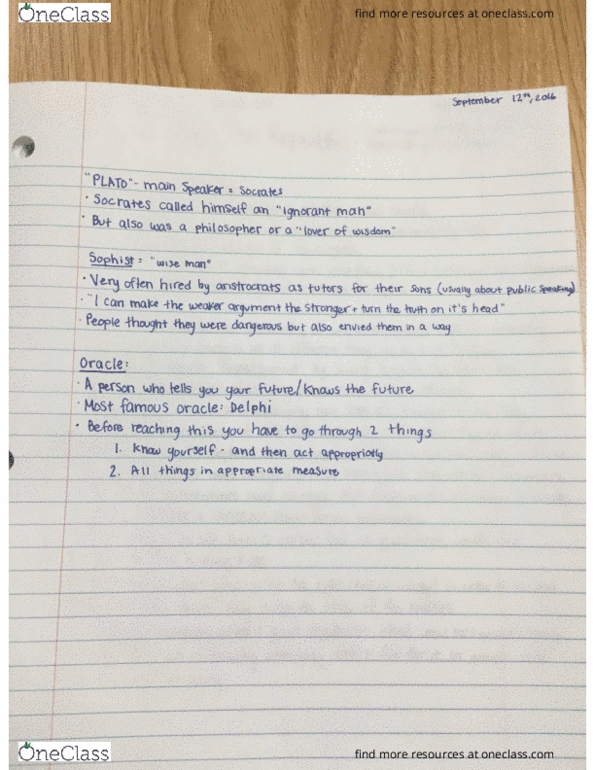 OneClass
find more resources at oneclass.com
September 12th, 2016
"PLATO" - main speaker = Socrates
· Socrates called himself an "ignorant man"
· But also was a philosopher or a "lover of wisdom"
Sophist = "wise man"
· Very often hired by aristocrats as tutors for their sons (usually about public speaking)
· "I can make the weaker argument the stronger + turn the truth on it's head"
· People thought they were dangerous but also envied them in a way
Oracle:
· A person who tells you your future/knows the future
· Most famous oracle: Delphi
· Before reaching this you have to go through 2 things
1. Know yourself - and then act appropriatly
2. All things in appropriate measure
OneClass
find more resources at oneclass.com